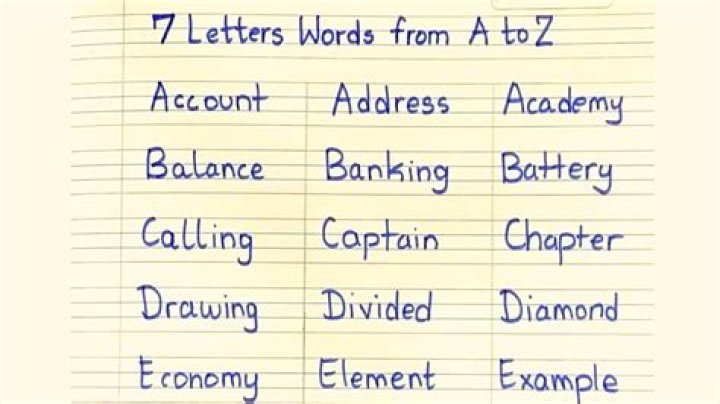 7 Letters Words from A to Z
Account Address Academy
Balance Banking Battery
Calling Captain Chapter
Drawing Divided Diamond
Economy Element Example